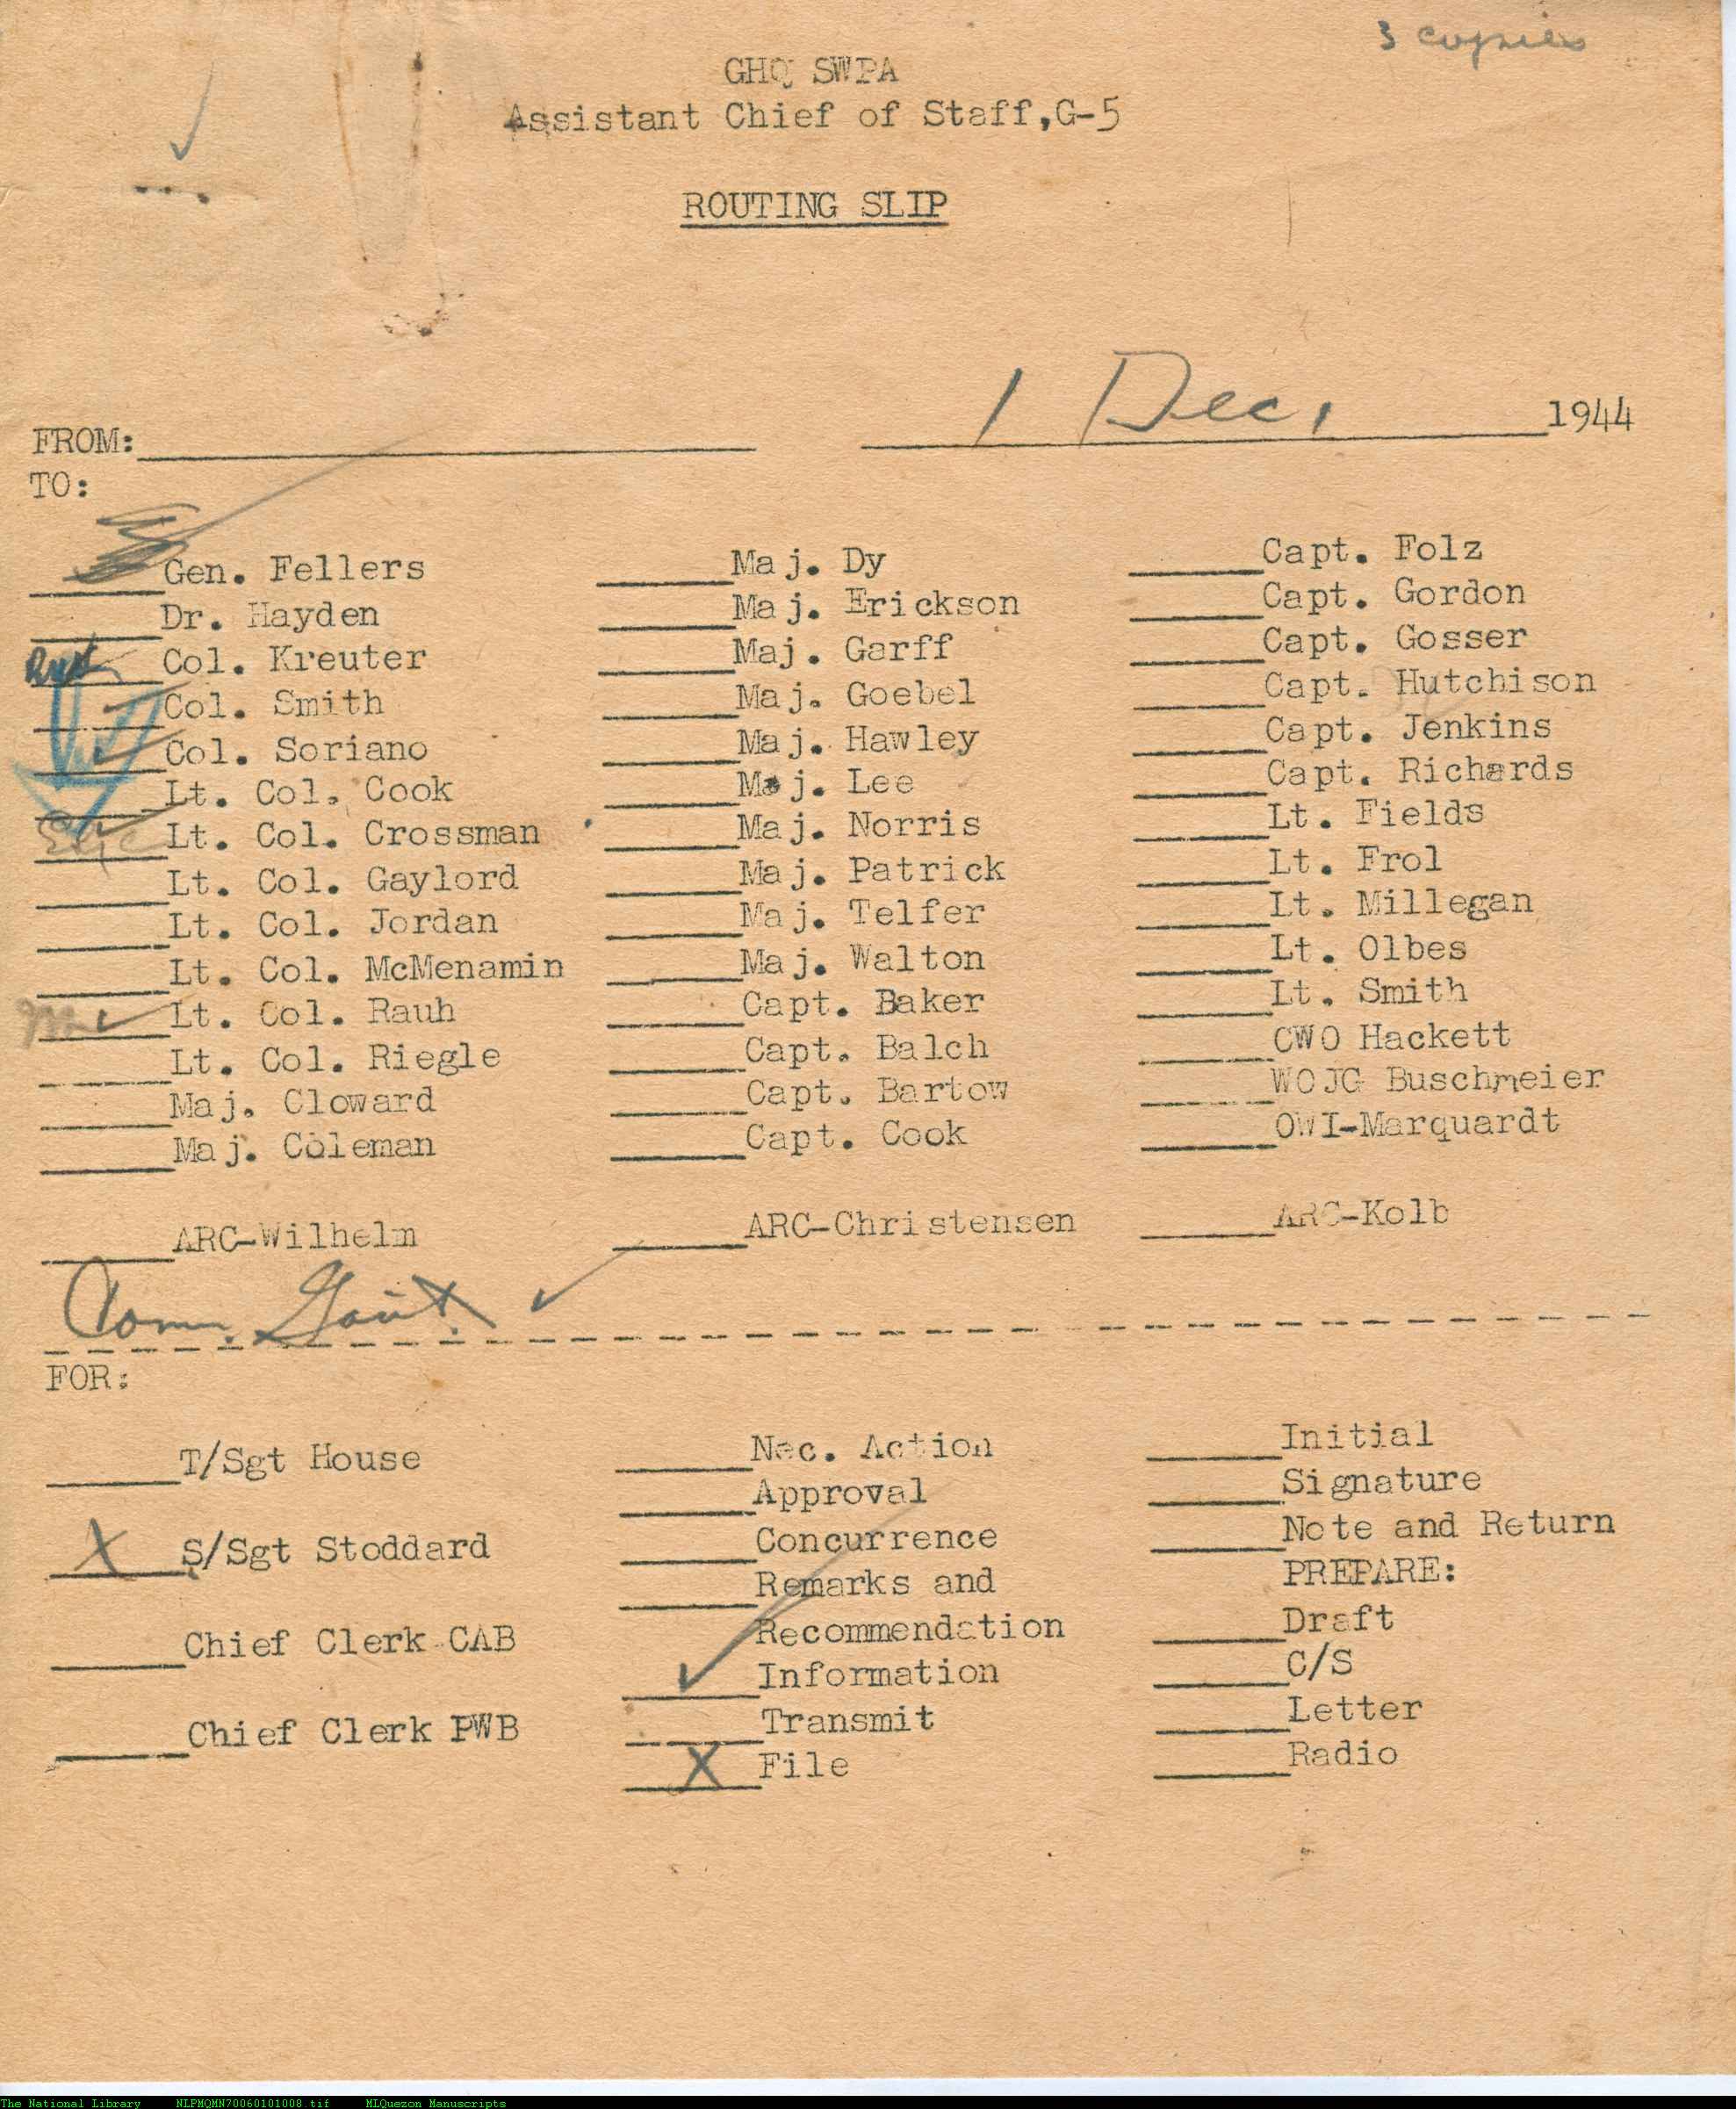 3 copies
GHQ SWPA
Assistant Chief of Staff,G-5
ROUTING SLIP
FROM: 1 Dec. 1944
TO:
Gen. Fellers Maj. Dy Capt. Folz
Dr. Hayden Maj. Erickson Capt. Gordon
Col. Kreuter Maj. Garff Capt. Gosser
Col. Smith Maj. Goebel Capt. Hutchison
Col. Soriano Maj. Hawley Capt. Jenkins
Lt. Col. Cook Maj. Lee Capt. Richards
Lt. Col. Crossman Maj. Norris Lt. Fields
Lt. Col. Gaylord Maj. Patrick Lt. Frol
Lt. Col. Jordan Maj. Telfer Lt. Millegan
Lt. Col. McMenamin Maj. Walton Lt. Olbes
Lt. Col. Rauh Capt. Baker Lt. Smith
Lt. Col. Riegle Capt. Balch CWO Hackett
Maj. Cloward Capt. Bartow WOJG Buschmeier
Maj. Coleman Capt. Cook OWI-Marquardt
ARC-Wilhelm ARC-Christensen ARC-Kolb
Com. Gov't.
FOR:
T/Sgt House Nec. Action Initial
Approval Signature
X S/Sgt Stoddard Concurrence Note and Return
Remarks and PREPARE:
Chief Clerk CAB Recommendation Draft
Information C/S
Chief Clerk PWB Transmit Letter
X File Radio
The National Library NLPMQMN70060101008.tif MLQuezon Manuscripts